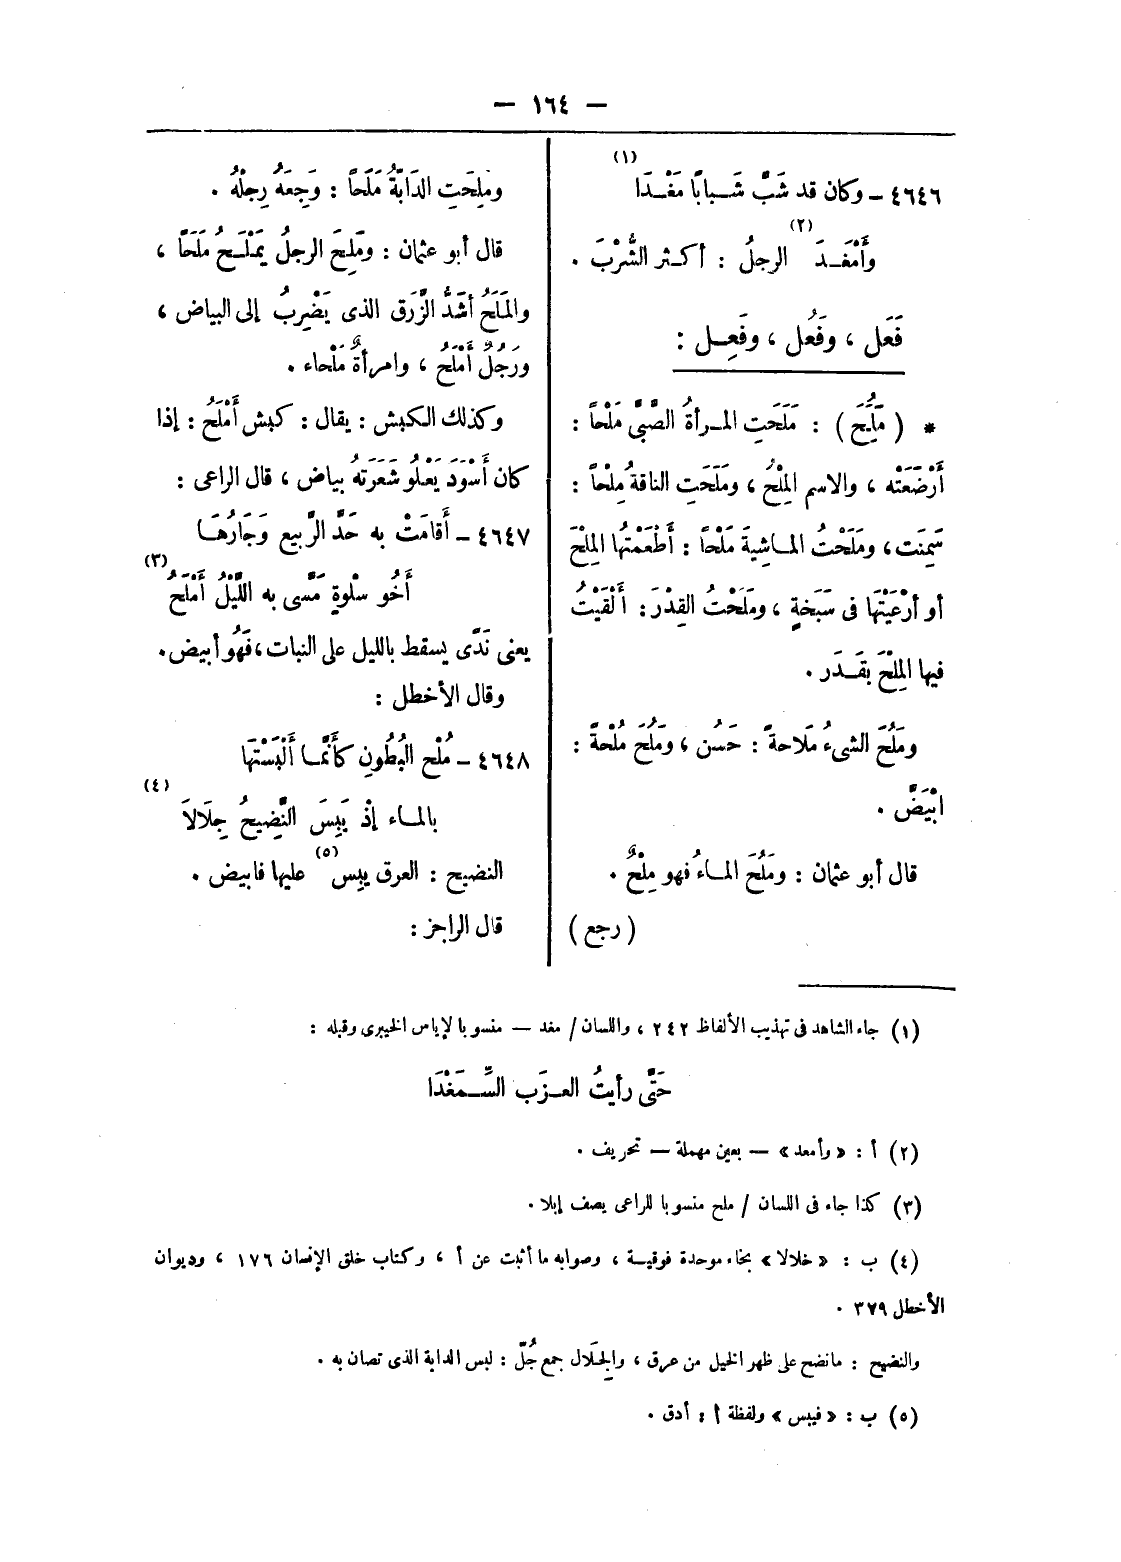 — ١٦٤ —
(١)
٤٦٤٦ – وكان قد شَبَّ شَبابًا مَغْدَا
(٢)
وأَمْغَدَ الرجلُ : أكثر الشُّرْبَ .
فَعَل ، وفَعُل ، وفَعِل :
* ( مَلُح ) : مَلَحَتِ المرأةُ الصَّبىَّ مَلْحاً :
أَرْضَعَتْه ، والاسم المِلْحُ ، ومَلَحَتِ الناقةُ مِلْحاً :
سَمِنَت ، ومَلَحْتُ الماشيةَ مَلْحاً : أَطْعَمْتُها المِلْحَ
أو أرْعَيْتَها فى سَبَخةٍ ، ومَلَحْتُ القِدْرَ : أَلْقَيْتُ
فيها المِلْحَ بقَدَر .
ومَلُحَ الشىءُ مَلَاحةً : حَسُن ، ومَلُحَ مُلْحةً :
ابْيَضَّ .
قال أبو عثمان : ومَلُحَ الماءُ فهو مِلْحٌ .
( رجع )
ومَلِحَتِ الدَابّةُ مَلَحاً : وَجِعَهُ رِجلُهُ .
قال أبو عثمان : ومَلِحَ الرجلُ يَمْلَحُ مَلَحَاً ،
والمَلَحُ أشَدُّ الزَّرَق الذى يَضْرِبُ إلى البياض ،
ورَجُلٌ أَمْلَحُ ، وامرأةٌ مَلْحاء .
وكذلك الكبش : يقال : كبش أَمْلَحُ : إذا
كان أَسْوَدَ يَعْلُو شَعَرَتَه بياض ، قال الراعى :
٤٦٤٧ – أَقامَتْ به حَدَّ الرَّبيع وَجَارُهَا
(٣)
أَخُو سَلْوةٍ مَسَّى به اللَّيْلُ أَمْلَحُ
يعنى نَدًى يسقط بالليل على النبات ، فَهُو أبيض .
وقال الأخطل :
٤٦٤٨ – مُلْح البُطُونِ كأَنَّما أَلْبَسْتَها
(٤)
بالماء إذْ يَبِسَ النَّضِيحُ جِلَالَا
(٥)
النضيح : العرق يبِس عليها فابيض .
قال الراجز :
(١) جاء الشاهد فى تهذيب الألفاظ ٢٤٢ ، واللسان / مغد — منسوبا لإياس الخيبرى وقبله :
حَتَّى رأيتُ العزَب السِّمَغْدَا
(٢) أ : « وأمعد » — بعين مهملة — تحريف .
(٣) كذا جاء فى اللسان / ملح منسوبا للراعى يصف إبلا .
(٤) ب : « خلالا » بخاء موحدة فوقية ، وصوابه ما أثبت عن أ ، وكتاب خلق الإنسان ١٧٦ ، وديوان
الأخطل ٣٧٩ .
والنضيح : مانضح على ظهر الخيل من عرق ، والجِلَال جمع جُلّ : لبس الدابة الذى تصان به .
(٥) ب : « فيبس » ولفظة أ : أدق .